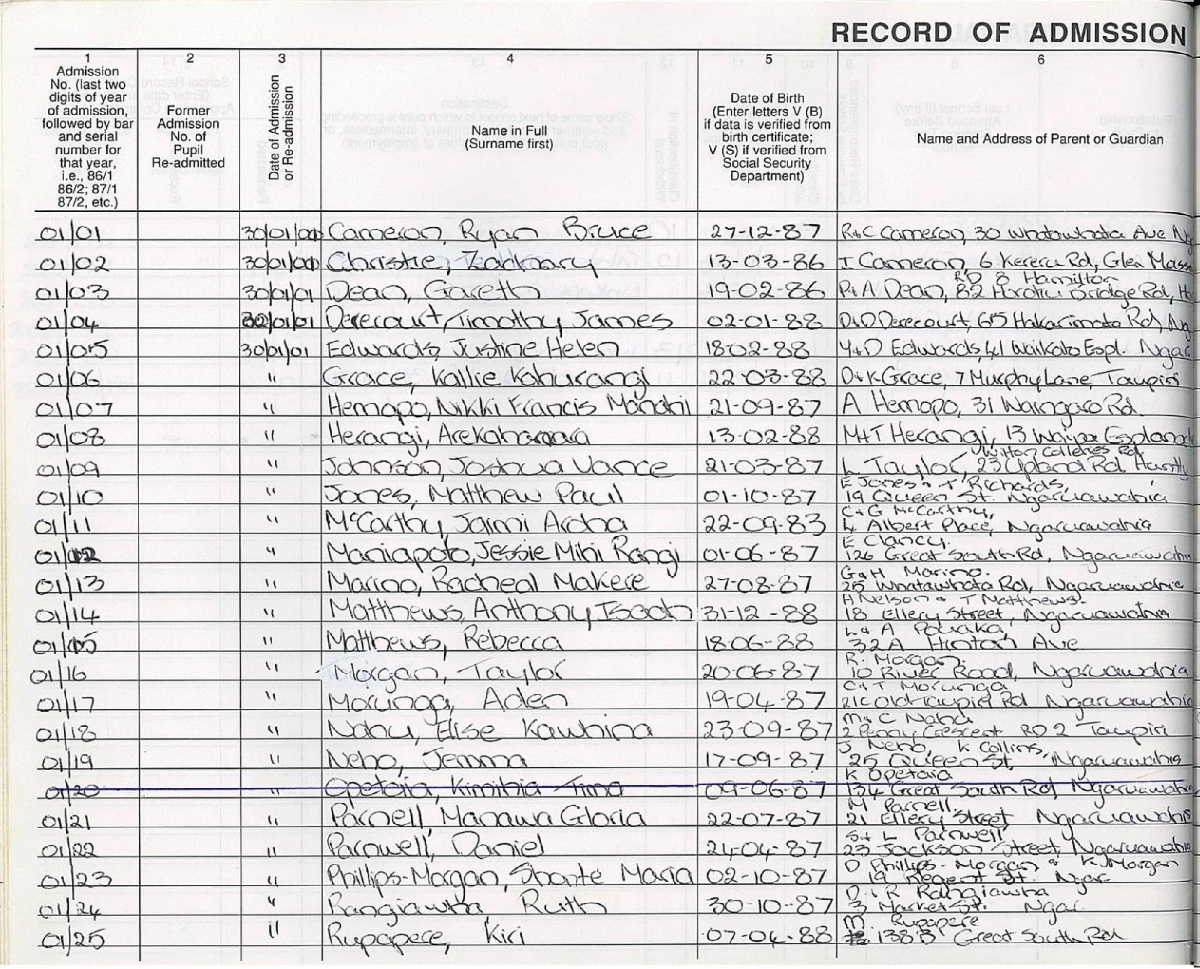 RECORD OF ADMISSION
1 2 3 4 5 6
Admission No. (last two digits of year of admission, followed by bar and serial number for that year, i.e., 86/1 86/2; 87/1 87/2, etc.)
Former Admission No. of Pupil Re-admitted
Date of Admission or Re-admission
Name in Full (Surname first)
Date of Birth (Enter letters V (B) if data is verified from birth certificate; V (S) if verified from Social Security Department)
Name and Address of Parent or Guardian
01/01 30/01/00 Cameron, Ryan Bruce 27-12-87 R+C Cameron, 30 Whatawhata Ave
01/02 30/01/00 Christie, Zachary 13-03-86 T Cameron, 6 Kereru Rd, Glen Masse
RD 8 Hamilton
01/03 30/01/01 Dean, Gareth 19-02-86 P+A Dean, 82 Horotiu Bridge Rd,
01/04 30/01/01 Derecourt, Timothy James 02-01-88 D+D Derecourt, 615 Hakarimata Rd, Nga
01/05 30/01/01 Edwards, Justine Helen 18-02-88 Y+D Edwards, 41 Waikato Espl. Ngar
01/06 " Grace, Kallie Kahurangi 22-03-88 D+K Grace, 7 Murphy Lane, Taupiri
01/07 " Hemopo, Nikki Francis 21-09-87 A Hemopo, 31 Waingaro Rd
01/08 " Herangi, 13-02-88 M+T Herangi, 13 Waipa Esplanad
Colleries Rd
01/09 " Johnson, Joshua Vance 21-03-87 L Taylor, 23 Upland Rd Huntly
E Jones + T Richards,
01/10 " Jones, Matthew Paul 01-10-87 19 Queen St. Ngaruawahia
C+G McCarthy,
01/11 " McCarthy, Jaimi Aroha 22-09-83 4 Albert Place, Ngaruawahia
E Clancy.
01/12 " Maniapoto, Jessie Mihi Rangi 01-06-87 126 Great South Rd, Ngaruawahi
G+H Marino.
01/13 " Marino, Racheal Makere 27-08-87 25 Whatawhata Rd, Ngaruawahia
A Nelson + T Matthews.
01/14 " Matthews, Anthony Isaah 31-12-88 18 Ellery Street, Ngaruawahia
L+A
01/15 " Matthews, Rebecca 18-06-88 32A Hinton Ave
R. Morgan.
01/16 " Morgan, Taylor 20-06-87 10 River Road, Ngaruawahia
C+T Morunga
01/17 " Morunga, Aden 19-04-87 21C Old Taupiri Rd Ngaruawahia
M+C Nahu
01/18 " Nahu, Elise Kawhina 23-09-87 2 Penny Crescent RD 2 Taupiri
J Neho, K Collins,
01/19 " Neho, Jemma 17-09-87 25 Queen St, Ngaruawahia
K Opetaia
01/20 " Opetaia, Kimihia Tima 09-06-87 134 Great South Rd, Ngaruawahi
M Parnell,
01/21 " Parnell, Manawa Gloria 22-07-87 21 Ellery Street Ngaruawahia
S+L Parnwell,
01/22 " Parnwell, Daniel 24-04-87 23 Jackson Street, Ngaruawahia
D Phillips-Morgan & K Morgan
01/23 " Phillips-Morgan, Shante Maria 02-10-87 19 Regent St. Ngar
D+R Rangiawha
01/24 " Rangiawha Ruth 30-10-87 3 Market St. Ngar.
M Rupapere
01/25 " Rupapere, Kiri 07-04-88 138B Great South Rd